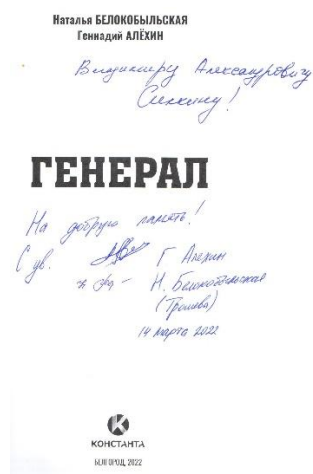 Наталья БЕЛОКОБЫЛЬСКАЯ
Геннадий АЛЁХИН
Владимиру Александровичу
Силкину!
ГЕНЕРАЛ
На добрую память!
С ув. Г Алехин
Н. Белокобыльская
(Трошева)
14 марта 2022
КОНСТАНТА
БЕЛГОРОД, 2022